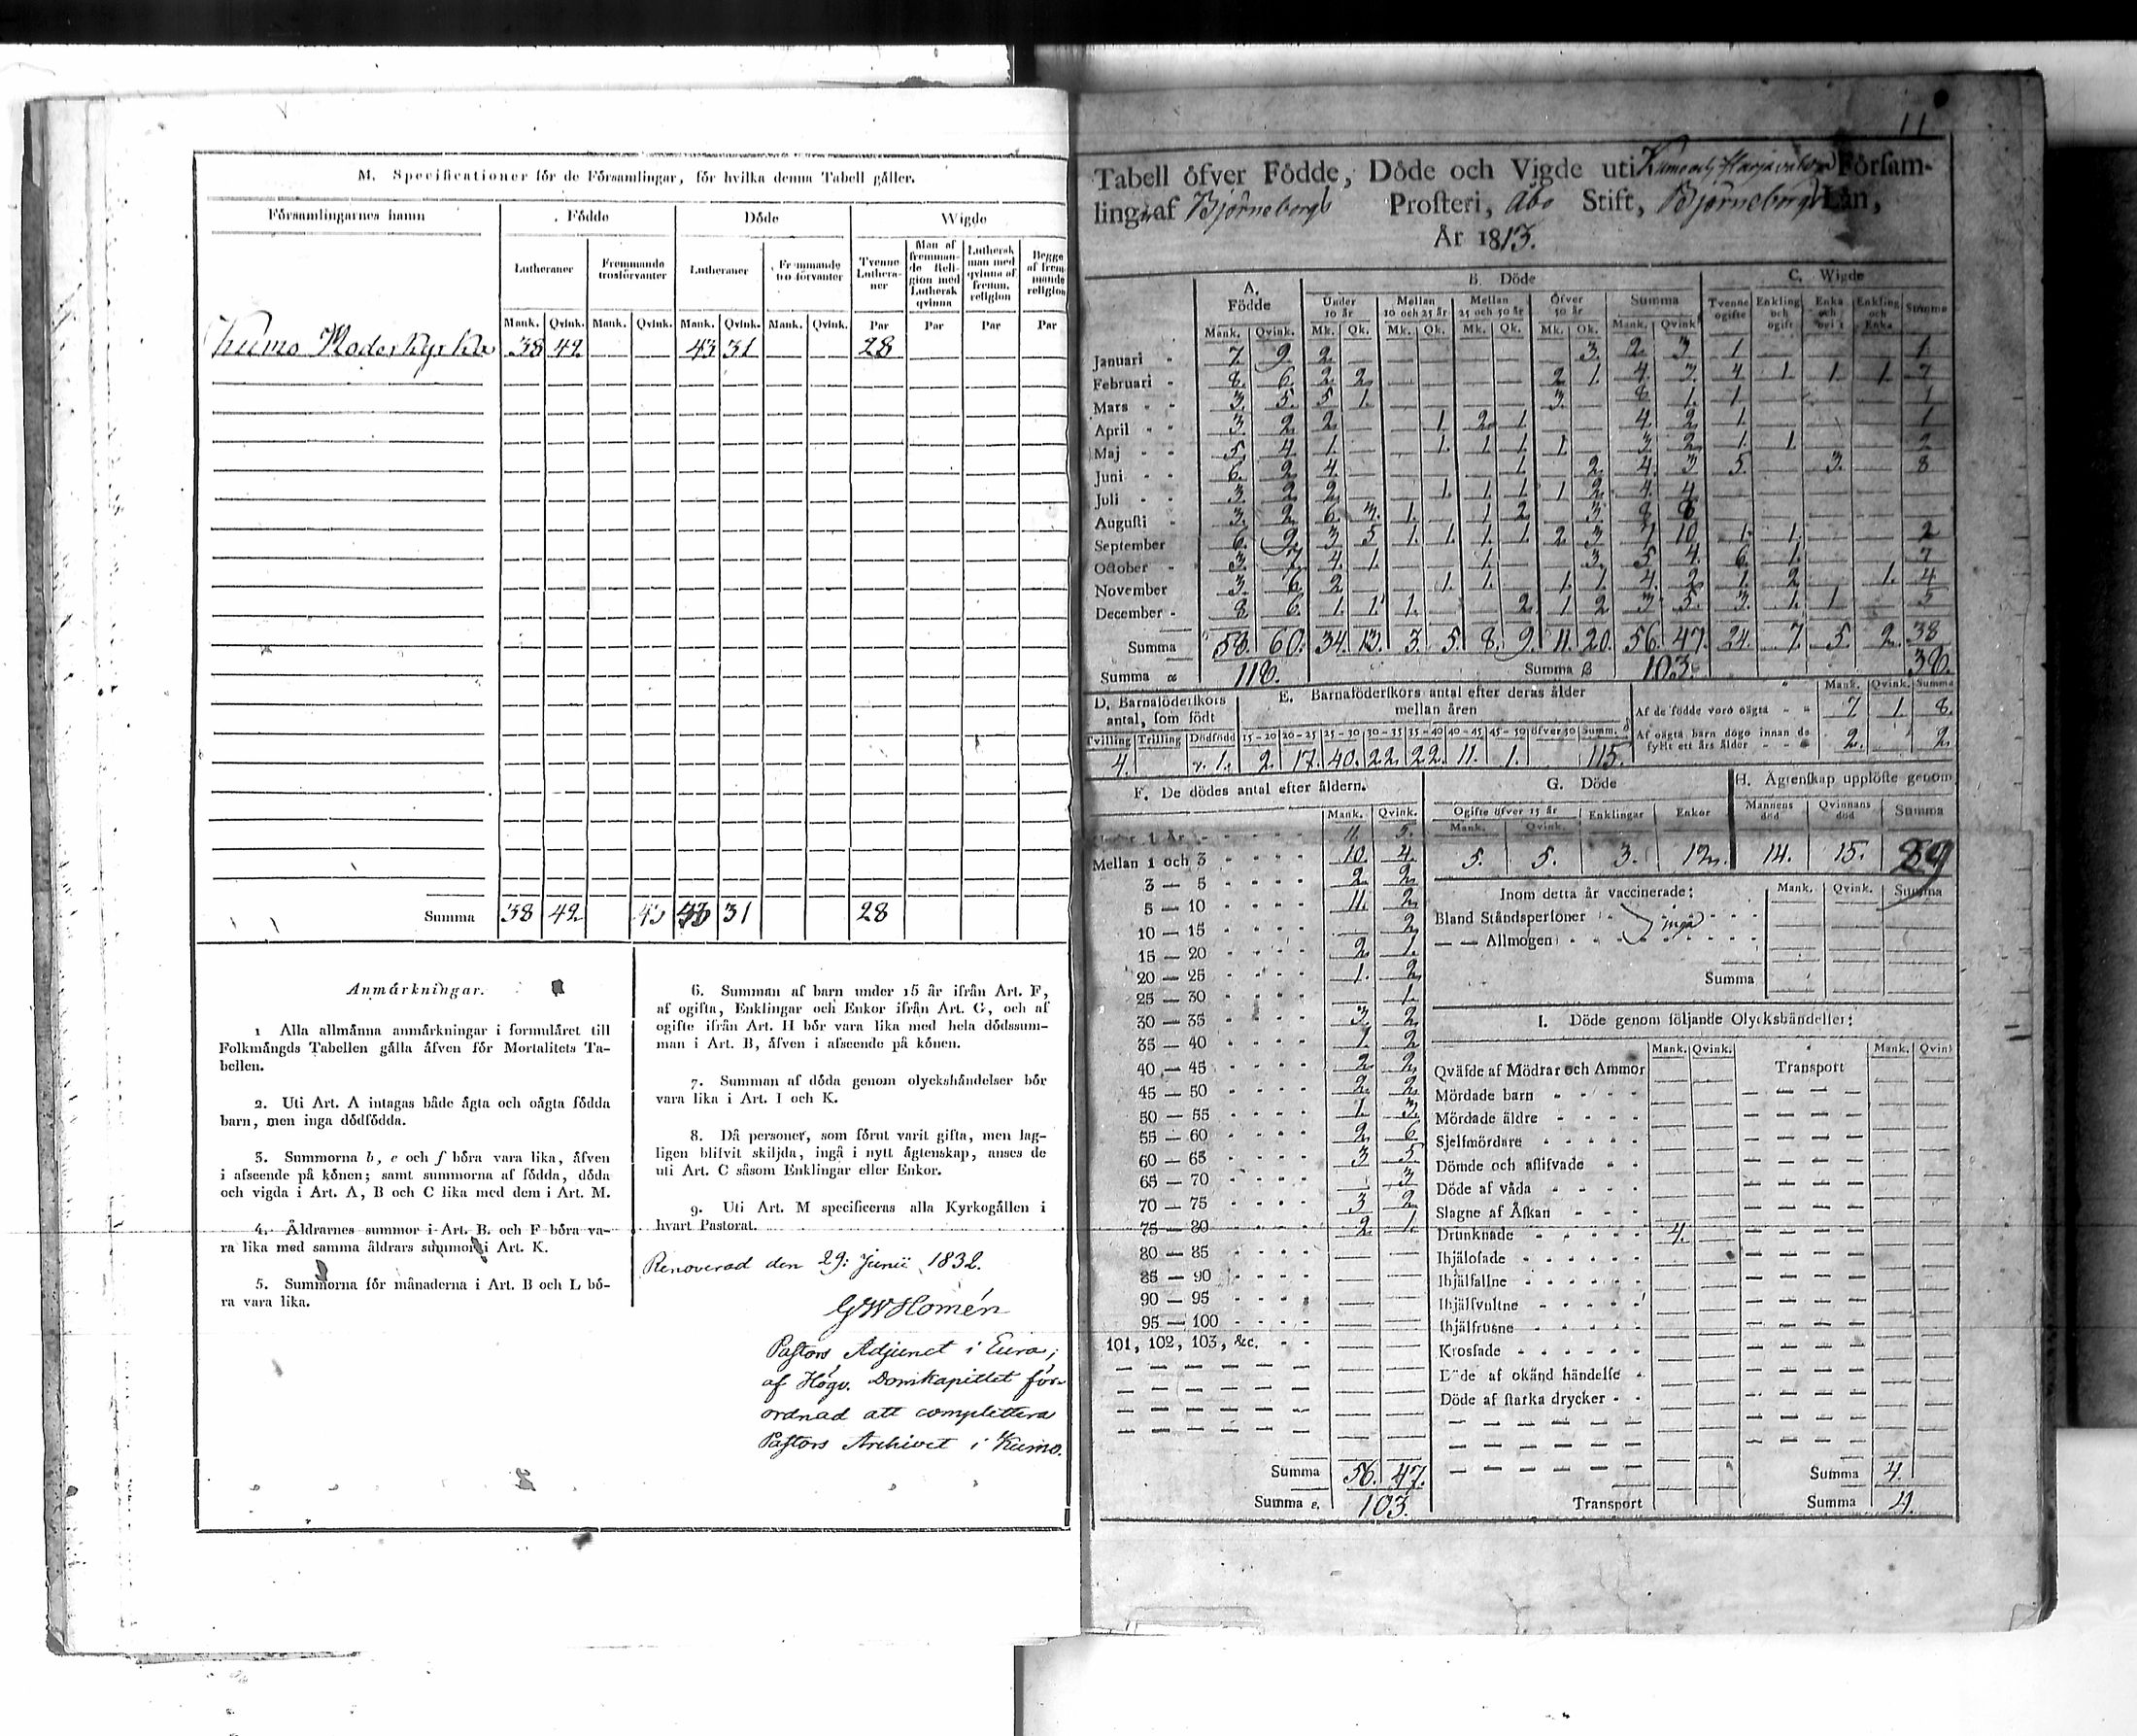 M. Specificationer för de Församlingar, för hvilka denna Tabell gäller.
Församlingarnes namn Födde Döde Wigde
Lutheraner Fremmande trosförvanter Lutheraner Fremmande trosförvanter Tvenne Lutheraner Man af fremmande Religion med Luthersk qvinna Luthersk man med qvinna af fremm. religion Begge af fremmande religion
Mank. Qvink. Mank. Qvink. Mank. Qvink. Mank. Qvink. Par Par Par Par
Kumo Moderkyrka 38 42 43 31 28
Summa 38 42 43 31 28
Anmärkningar.
1 Alla allmänna anmärkningar i formuläret till
Folkmängds Tabellen gälla äfven för Mortalitets Ta-
bellen.
2. Uti Art. A intagas både ägta och oägta födda
barn, men inga dödfödda.
3. Summorna b, e och f böra vara lika, äfven
i afseende på könen; samt summorna af födda, döda
och vigda i Art. A, B och C lika med dem i Art. M.
4. Åldrarnes summor i Art. B. och F böra va-
ra lika med samma åldrars summor i Art. K.
5. Summorna för månaderna i Art. B och L bö-
ra vara lika.
6. Summan af barn under 15 år ifrån Art. F,
af ogifta, Enklingar och Enkor ifrån Art. G, och af
ogifte ifrån Art. H bör vara lika med hela dödssum-
man i Art. B, äfven i afseende på könen.
7. Summan af döda genom olyckshändelser bör
vara lika i Art. I och K.
8. Då personer, som förut varit gifta, men lag-
ligen blifvit skiljda, ingå i nytt ägtenskap, anses de
uti Art. C såsom Enklingar eller Enkor.
9. Uti Art. M specificeras alla Kyrkogällen i
hvart Pastorat.
Renoverad den 29: Junii 1832.
GWHomén
Pastors Adjunct i Eura,
af Högv. Domkapitlet för-
ordnad att complettera
Pastors Archivet i Kumo.
11
Tabell öfver Födde, Döde och Vigde uti Kumo och Harjavalda Försam-
ling af Björneborgs Prosteri, Åbo Stift, Björneborgs Län,
År 1813.
A. Födde B. Döde C. Wigde
Under 10 år Mellan 10 och 25 år Mellan 25 och 50 år Öfver 50 år Summa Tvenne ogifte Enkling och ogift Enka och Enkling och Enka Summa
Mank. Qvink. Mk. Qk. Mk. Qk. Mk. Qk. Mk. Qk. Mank. Qvink.
Januari 7. 9. 2. 3. 2. 3. 1. 1.
Februari 8. 6. 2. 2. 2. 1. 4. 3. 4. 1. 1. 1. 7
Mars 3. 5. 5. 1. 3. 8. 1. 1. 1
April 3. 2. 2. 1. 2. 1. 4. 2. 1. 1
Maj 5. 4. 1. 1. 1. 1. 1. 3. 2. 1. 1. 2
Juni 6. 2. 4. 1. 2. 4. 3. 5. 3. 8
Juli 3. 2. 2. 1. 1. 1. 1. 2. 4. 4.
Augusti 3. 2. 6. 3. 1. 1. 2. 3. 8. 8.
September 6. 9. 3. 5. 1. 1. 1. 1. 2. 3. 7. 10. 1. 1. 2
October 3. 7. 4. 1. 1. 3. 5. 4. 6. 1. 7
November 3. 6. 2. 1. 1. 1. 1. 4. 2. 1. 2. 1. 4
December 8. 6. 1. 1. 1. 2. 1. 2. 3. 5. 3. 1. 1. 5
Summa 58. 60. 34. 13. 3. 5. 8. 9. 11. 20. 56. 47. 24. 7. 5. 2. 38
Summa α 118. Summa β 103. 38.
D. Barnaföderskors antal, som födt
Tvilling Trilling Dödfödd
4. 1.
E. Barnaföderskors antal efter deras ålder mellan åren
15-20 20-25 25-30 30-35 35-40 40-45 45-50 öfver 50 Summ. δ
2. 17. 40. 22. 22. 11. 1. 115.
Mank. Qvink. Summa
Af de födde voro oägta 7 1. 8.
Af oägta barn dögo innan de fyllt ett års ålder 2. 2.
F. De dödes antal efter åldern.
Mank. Qvink.
Under 1 År 11. 5.
Mellan 1 och 3 10. 4.
3 — 5 2. 2.
5 — 10 11. 2.
10 — 15 2.
15 — 20 2. 1.
20 — 25 1. 2.
25 — 30 1.
30 — 35 3. 2.
35 — 40 1. 2
40 — 45 2. 2.
45 — 50 2. 2.
50 — 55 1. 3.
55 — 60 2. 6
60 — 65 3 5.
65 — 70 3
70 — 75 3 2
75 — 80 2. 1.
80 — 85
85 — 90
90 — 95
95 — 100
101, 102, 103, &c.
Summa 56. 47.
Summa e. 103.
G. Döde
Ogifte öfver 15 år Enklingar Enkor
Mank. Qvink.
5. 5. 3. 12.
H. Ägtenskap upplöste genom
Mannens död Qvinnans död Summa
14. 15. 29
Inom detta år vaccinerade: Mank. Qvink. Summa
Bland Ståndspersoner
— — Allmogen inga
Summa
I. Döde genom följande Olyckshändelser:
Mank. Qvink. Transport Mank. Qvink
Qväfde af Mödrar och Ammor
Mördade barn
Mördade äldre
Sjelfmördare
Dömde och aflifvade
Döde af våda
Slagne af Åskan
Drunknade 4.
Ihjälosade
Ihjälfallne
Ihjälsvultne
Ihjälfrusne
Krossade
Döde af okänd händelse
Döde af starka drycker
Summa 4.
Transport Summa 4.